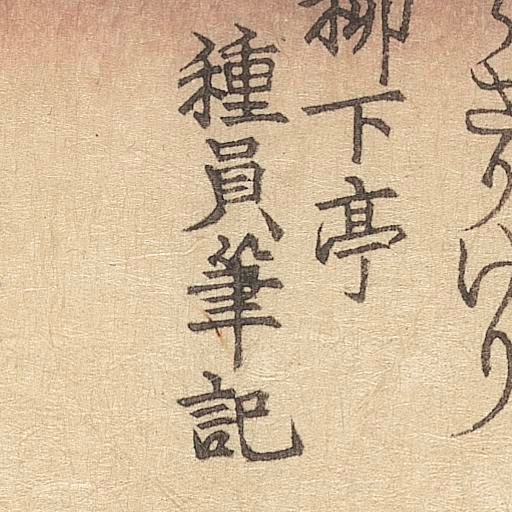 さりけり
柳下亭
種員筆記